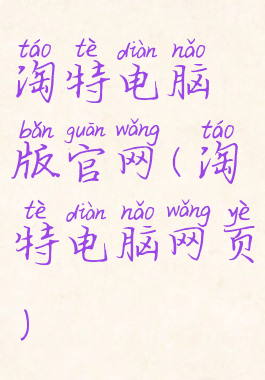 táo tè diàn nǎo
淘特电脑
bǎn guān wǎng táo
版官网(淘
tè diàn nǎo wǎng yè
特电脑网页
)